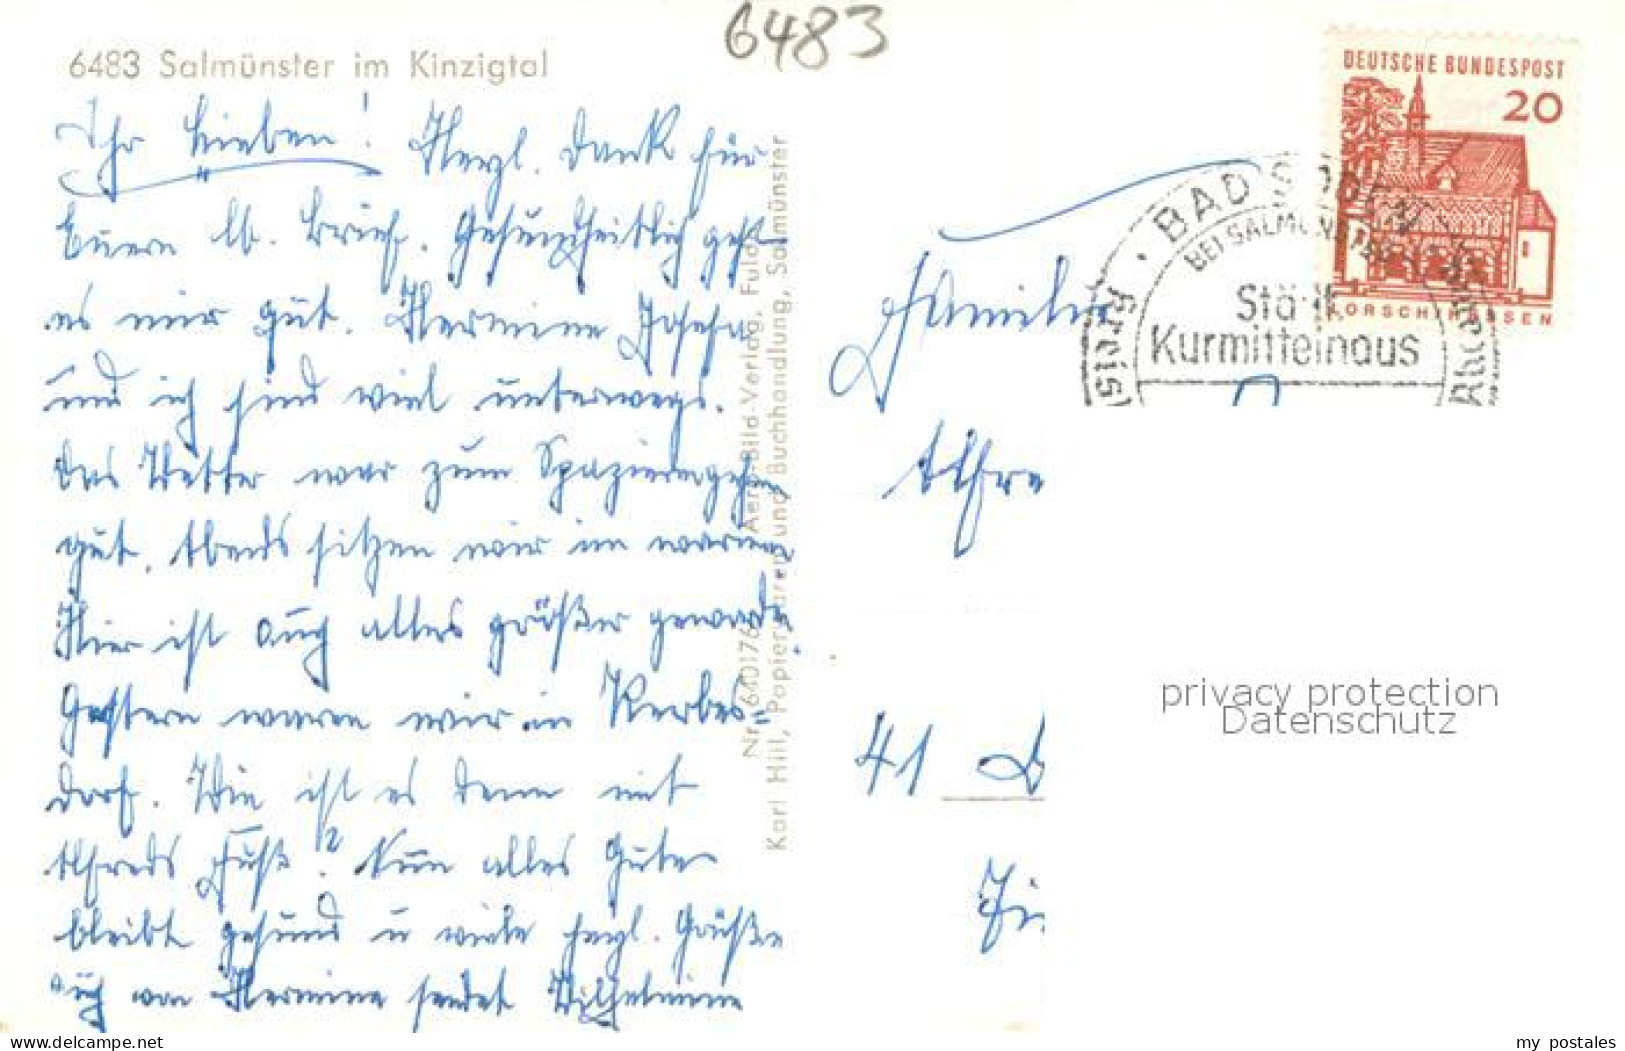 6483
6483 Salmünster im Kinzigtal
Ihr Lieben! Herzl. Dank für
Euern lb. Brief. Gesundheitlich geht
es mir gut. Hermine Josefa
und ich sind viel unterwegs.
Das Wetter war zum Spazierengehen
gut. Abends sitzen wir im warmen
Hier ist auch alles größer geworden.
Gestern waren wir in Kerbers=
dorf. Wie ist es denn mit
Alfreds Fuß? Nun alles Gute
bleibt gesund u viele herzl. Grüße
auch von Hermine sendet Wilhelmine
Nr. 640176 Aero-Bild-Verlag, Fulda
Karl Hill, Papierwaren und Buchhandlung, Salmünster
DEUTSCHE BUNDESPOST
20
LORSCH/HESSEN
BAD SODEN
BEI SALMÜNSTER
Kreis
Städt.
Kurmittelhaus
Familie
Alfre
41 D
privacy protection
Datenschutz
www.delcampe.net
my_postales